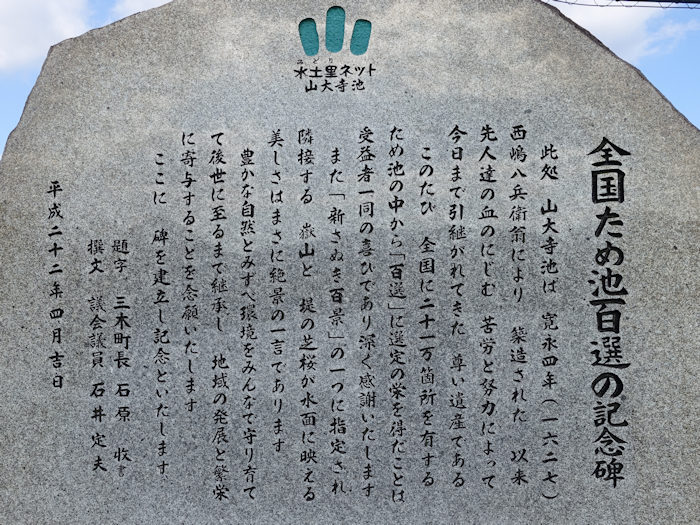 みどり
水土里ネット
山大寺池
全国ため池百選の記念碑
此処 山大寺池は 寛永四年(一六二七)
西嶋八兵衛翁により 築造された 以来
先人達の血のにじむ 苦労と努力によって
今日まで引継がれてきた 尊い遺産である
このたび 全国に二十一万箇所を有する
ため池の中から「百選」に選定の栄を得たことは
受益者一同の喜びであり深く感謝いたします
また「新さぬき百景」の一つに指定され
隣接する 嶽山と 堤の芝桜が水面に映える
美しさはまさに絶景の一言であります
豊かな自然とみずべ環境をみんなで守り育て
て後世に至るまで継承し 地域の発展と繁栄
に寄与することを念願いたします
ここに 碑を建立し記念といたします
題字 三木町長 石原 收書
撰文 議会議員 石井定夫
平成二十二年四月吉日